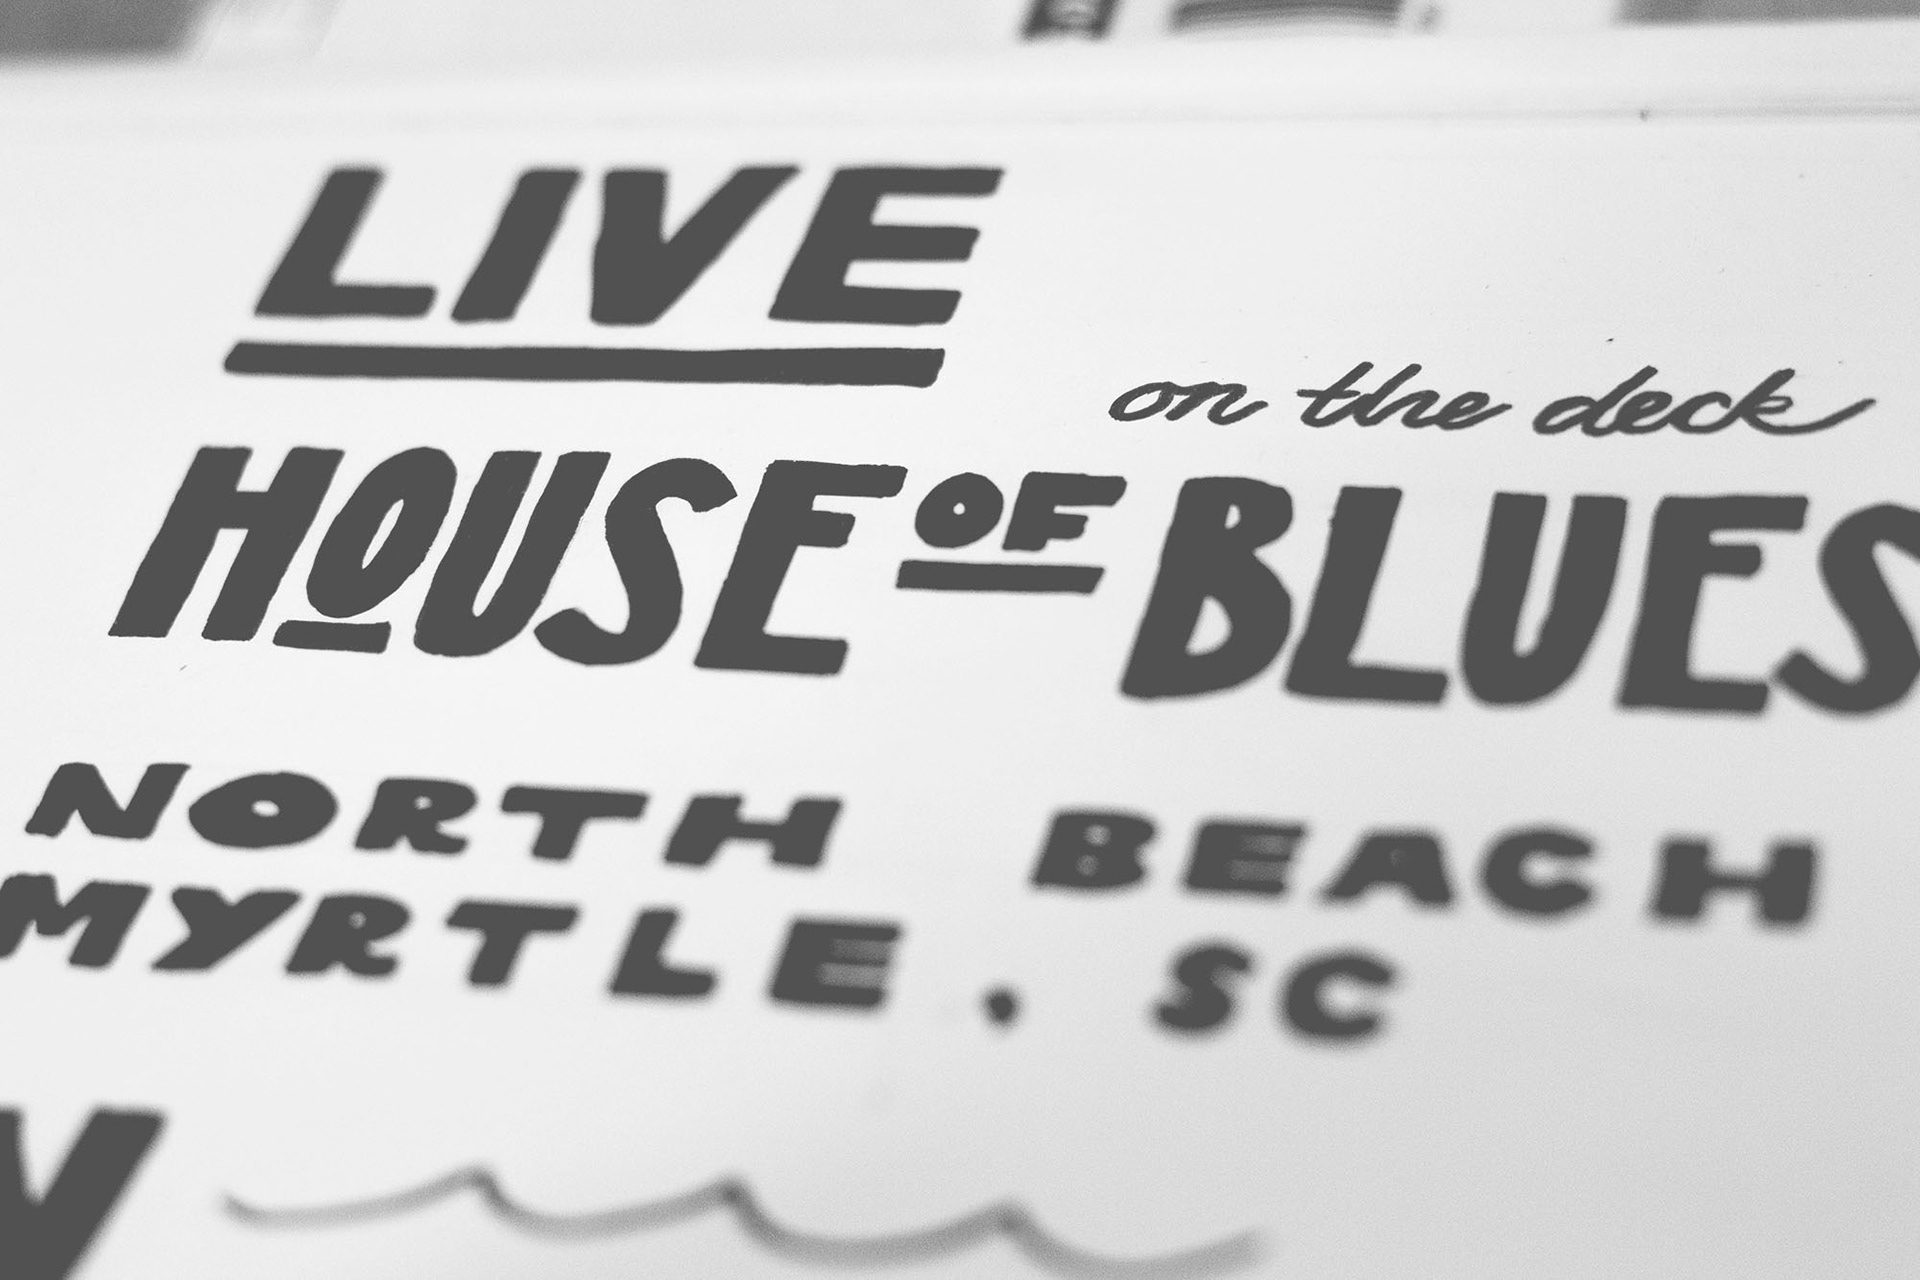 LIVE
on the deck
HOUSE OF BLUES
NORTH BEACH
MYRTLE, SC